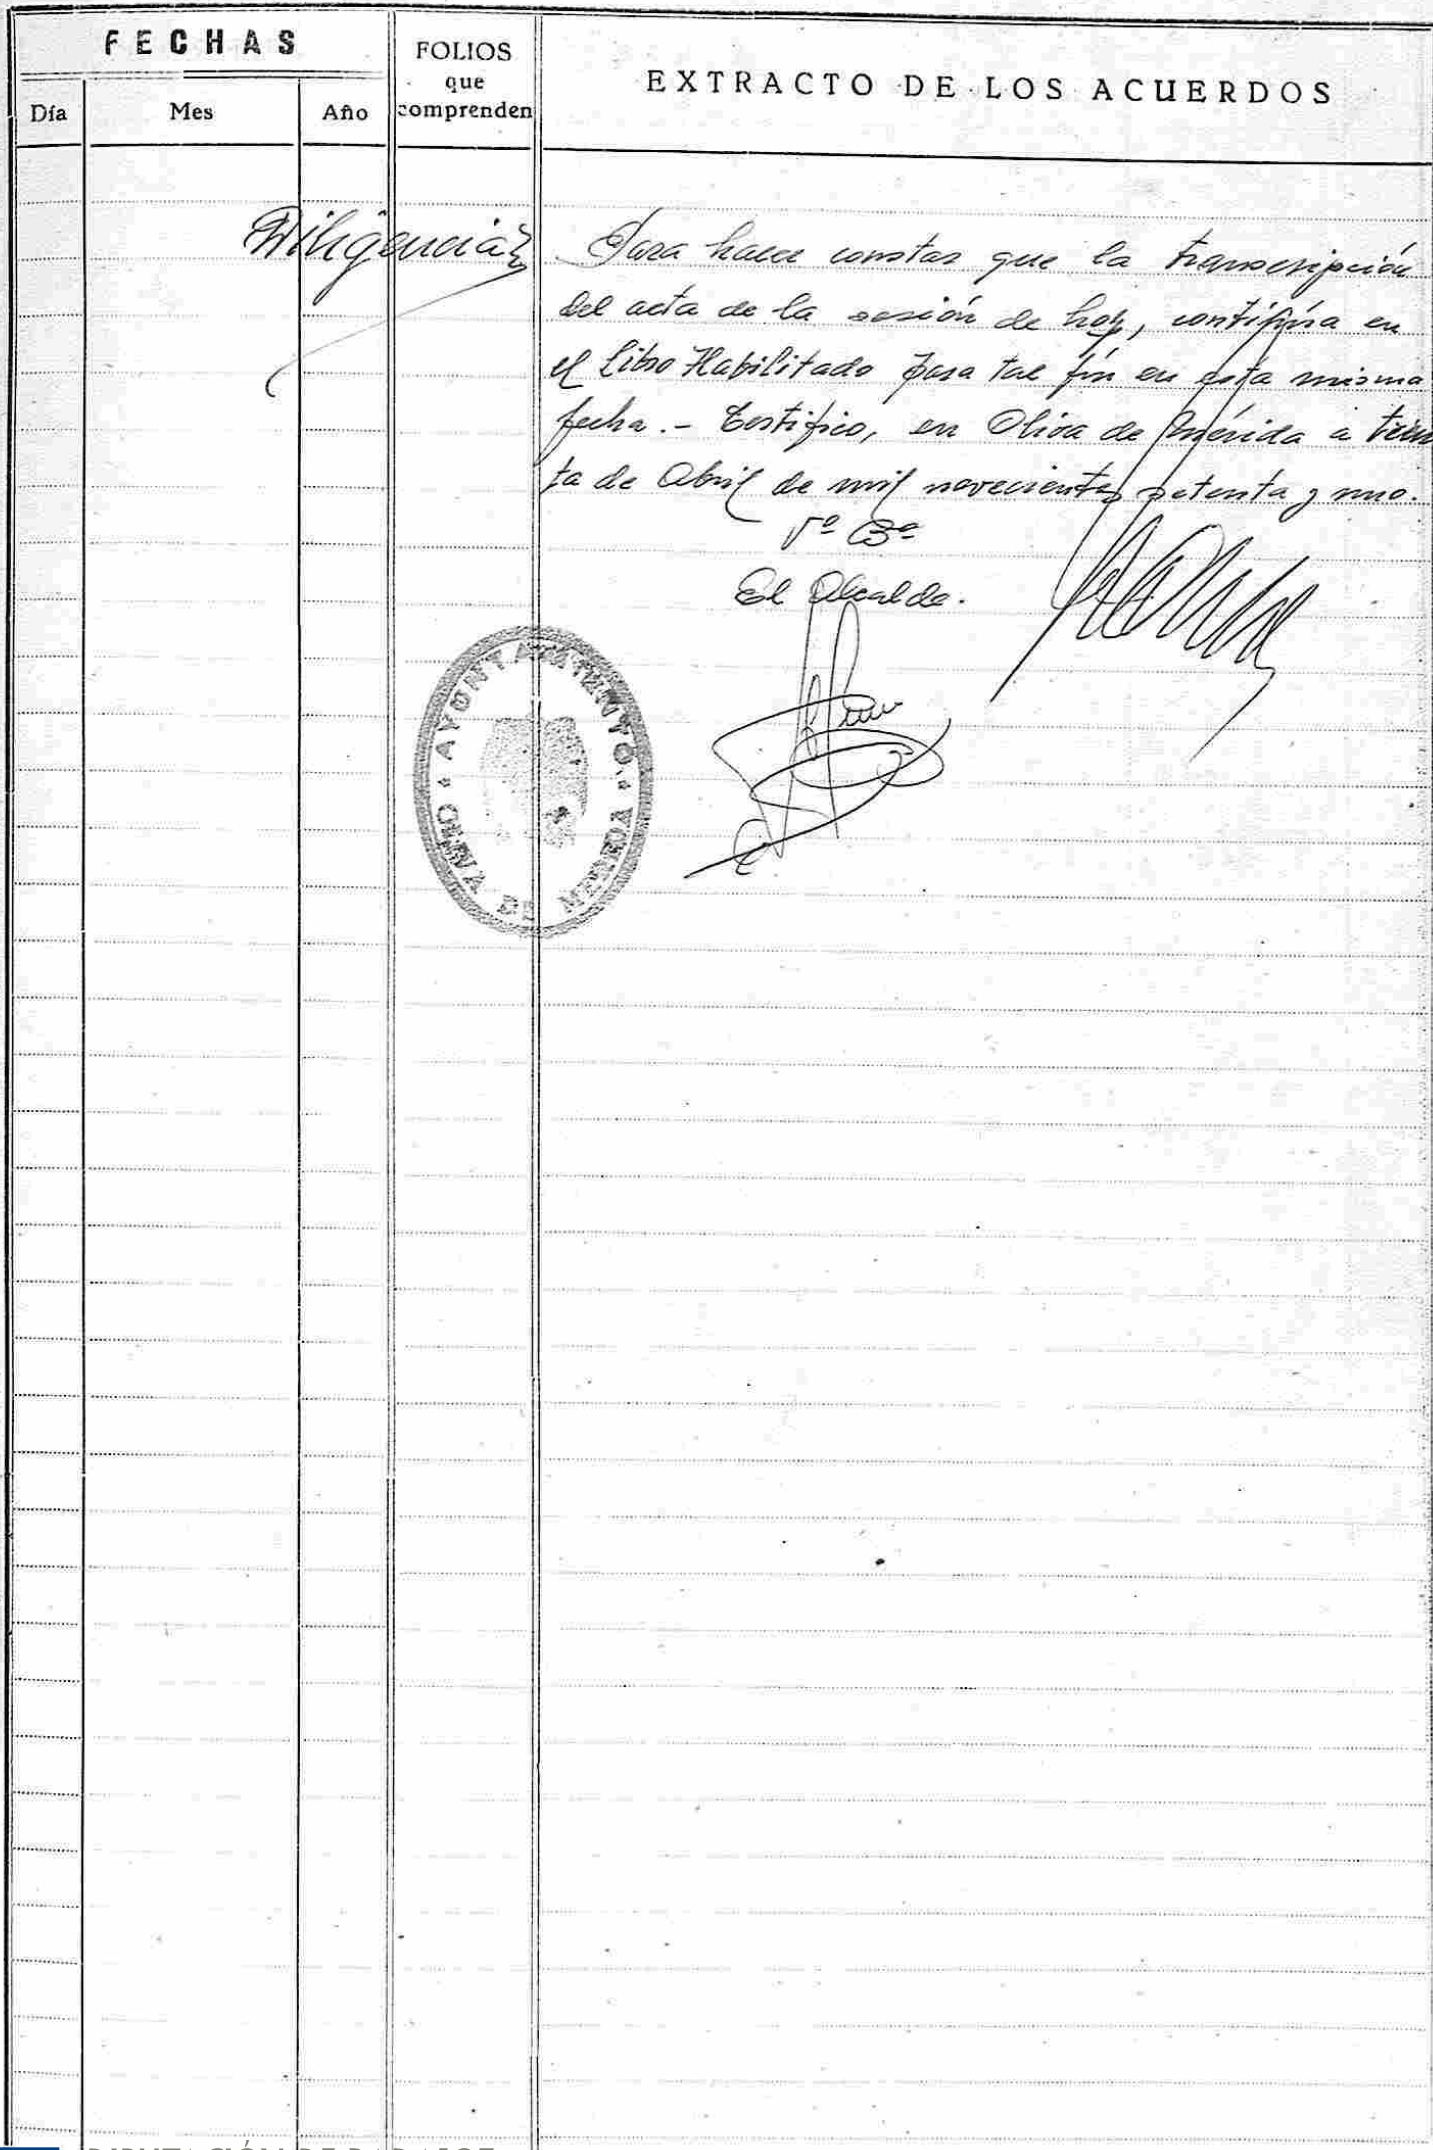 FECHAS
FOLIOS
que
comprenden
EXTRACTO DE LOS ACUERDOS
Día
Mes
Año
Diligencia
Para hacer constar que la transcripción
del acta de la sesión de hoy, continúa en
el Libro Habilitado para tal fín en esta misma
fecha.- Certifico, en Oliva de Mérida a trein
ta de Abril de mil novecientos setenta y uno.
Vº Bº
El Alcalde.
AYUNTAMIENTO
OLIVA DE MERIDA
DIPUTACIÓN DE BADAJOZ